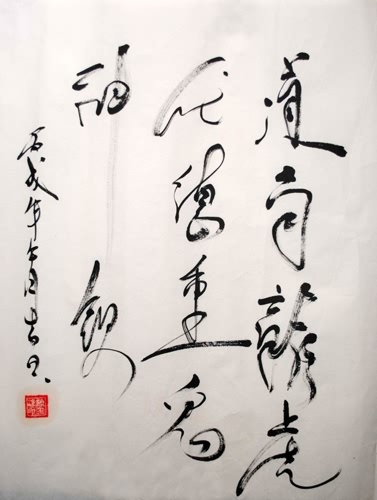 道高龍虎
伏德重鬼
神欽
丙戌年月吉日